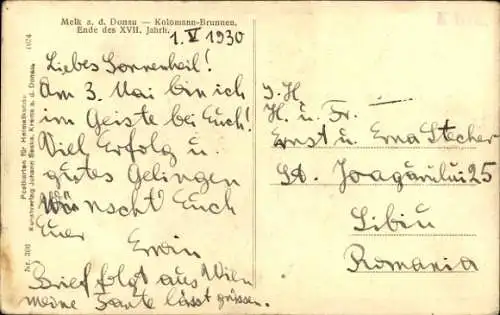 Melk a. d. Donau — Kolomann-Brunnen,
Ende des XVII. Jahrh.
1. V 1930
Liebes Sonnenheil!
Am 3. Mai bin ich
im Geiste bei Euch!
Viel Erfolg u.
gutes Gelingen
wünscht Euch
Euer
Erwin
Brief folgt aus Wien
meine Tante lässt grüssen.
S. H
H. u. Fr.
Ernst u. Erna Stecher
St. 25
Sibiu
Romania
Postkarten für Heimatkunde
Kunstverlag Johann Krems a. d. Donau.
Nr. 306